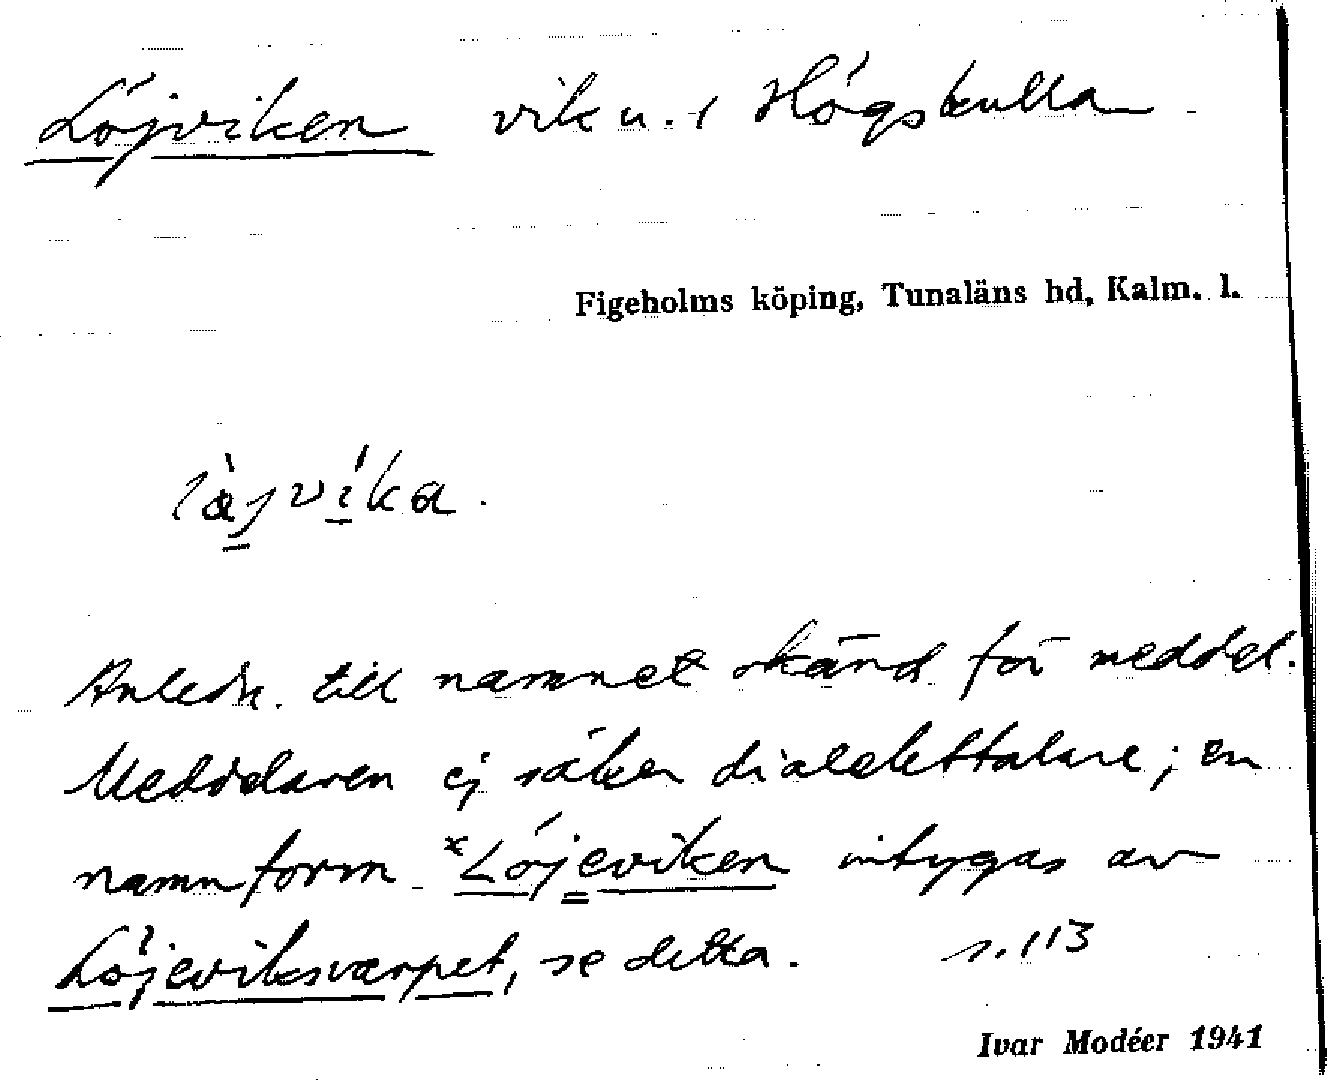 Löjviken vik u. i Högskulla
Figeholms köping, Tunaläns hd, Kalm. l.
läjvika.
Anledn. till namnet okänd för meddel.
Meddelaren ej säker dialekttalare; en
namnform *Löjeviken intygas av
Löjeviksvarpet, se detta. s. 113
Ivar Modéer 1941